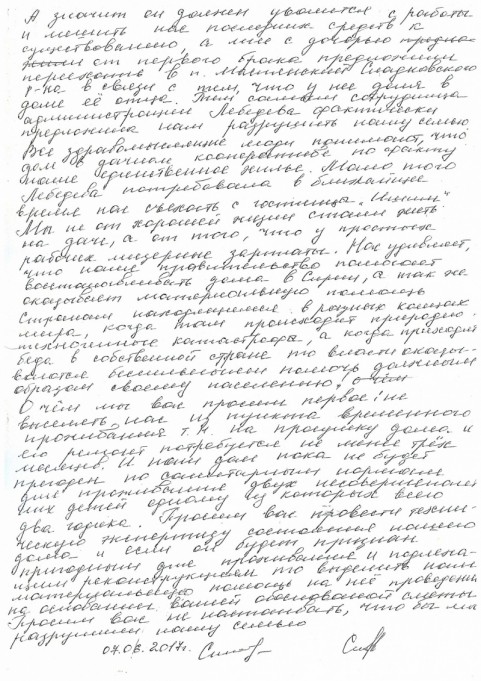 А значит он должен уволится с работы
и лишить нас последних средств к
существованию, а мне с дочерью предло-
жили от первого брака предложили
переехать в п. Мытнинский Сладковского
р-на в связи с тем, что у неё доля в
доме её отца. Тем самым сотрудница
администрации Лебедева фактически
предложила нам разрушить нашу семью.
Все здравомыслящие люди понимают, что
дом в дачном кооперативе по факту
наше единственное жильё. Мало того
Лебедева потребовала в ближайшее
время нас съехать с гостиницы "Ишим"
Мы не от хорошей жизни стали жить
на даче, а от того, что у простых
рабочих мизерные зарплаты. Нас удивляет,
что наше правительство помогает
восстанавливать дома в Сирии, а так же
оказывает материальную помощь
странам находящиеся в разных концах
мира, когда там происходит природно-
техногенные катастрофы, а когда приходит
беда в собственной стране то власти оказы-
ваются бессильными помочь должным
образом своему населению. О чём
О чём мы вас просим первое: не
выселять нас из пункта временного
проживания т.к. на просушку дома и
его ремонт потребуется не менее трёх
месяцев. И наш дом пока не будет
пригоден по санитарным нормам
для проживание двух несовершеннолет
них детей одному из которых всего
два годика. Просим вас провести техни-
ческую экспертизу состояния нашего
дома и если он будет признан
пригодным для проживание и подлежа-
щим реконструкции то выделить нам
материальную помощь на её проведение
на основании вашей обоснованной сметы
Просим вас не настаивать, что бы мы
разрушили нашу семью
07.06.2017г.